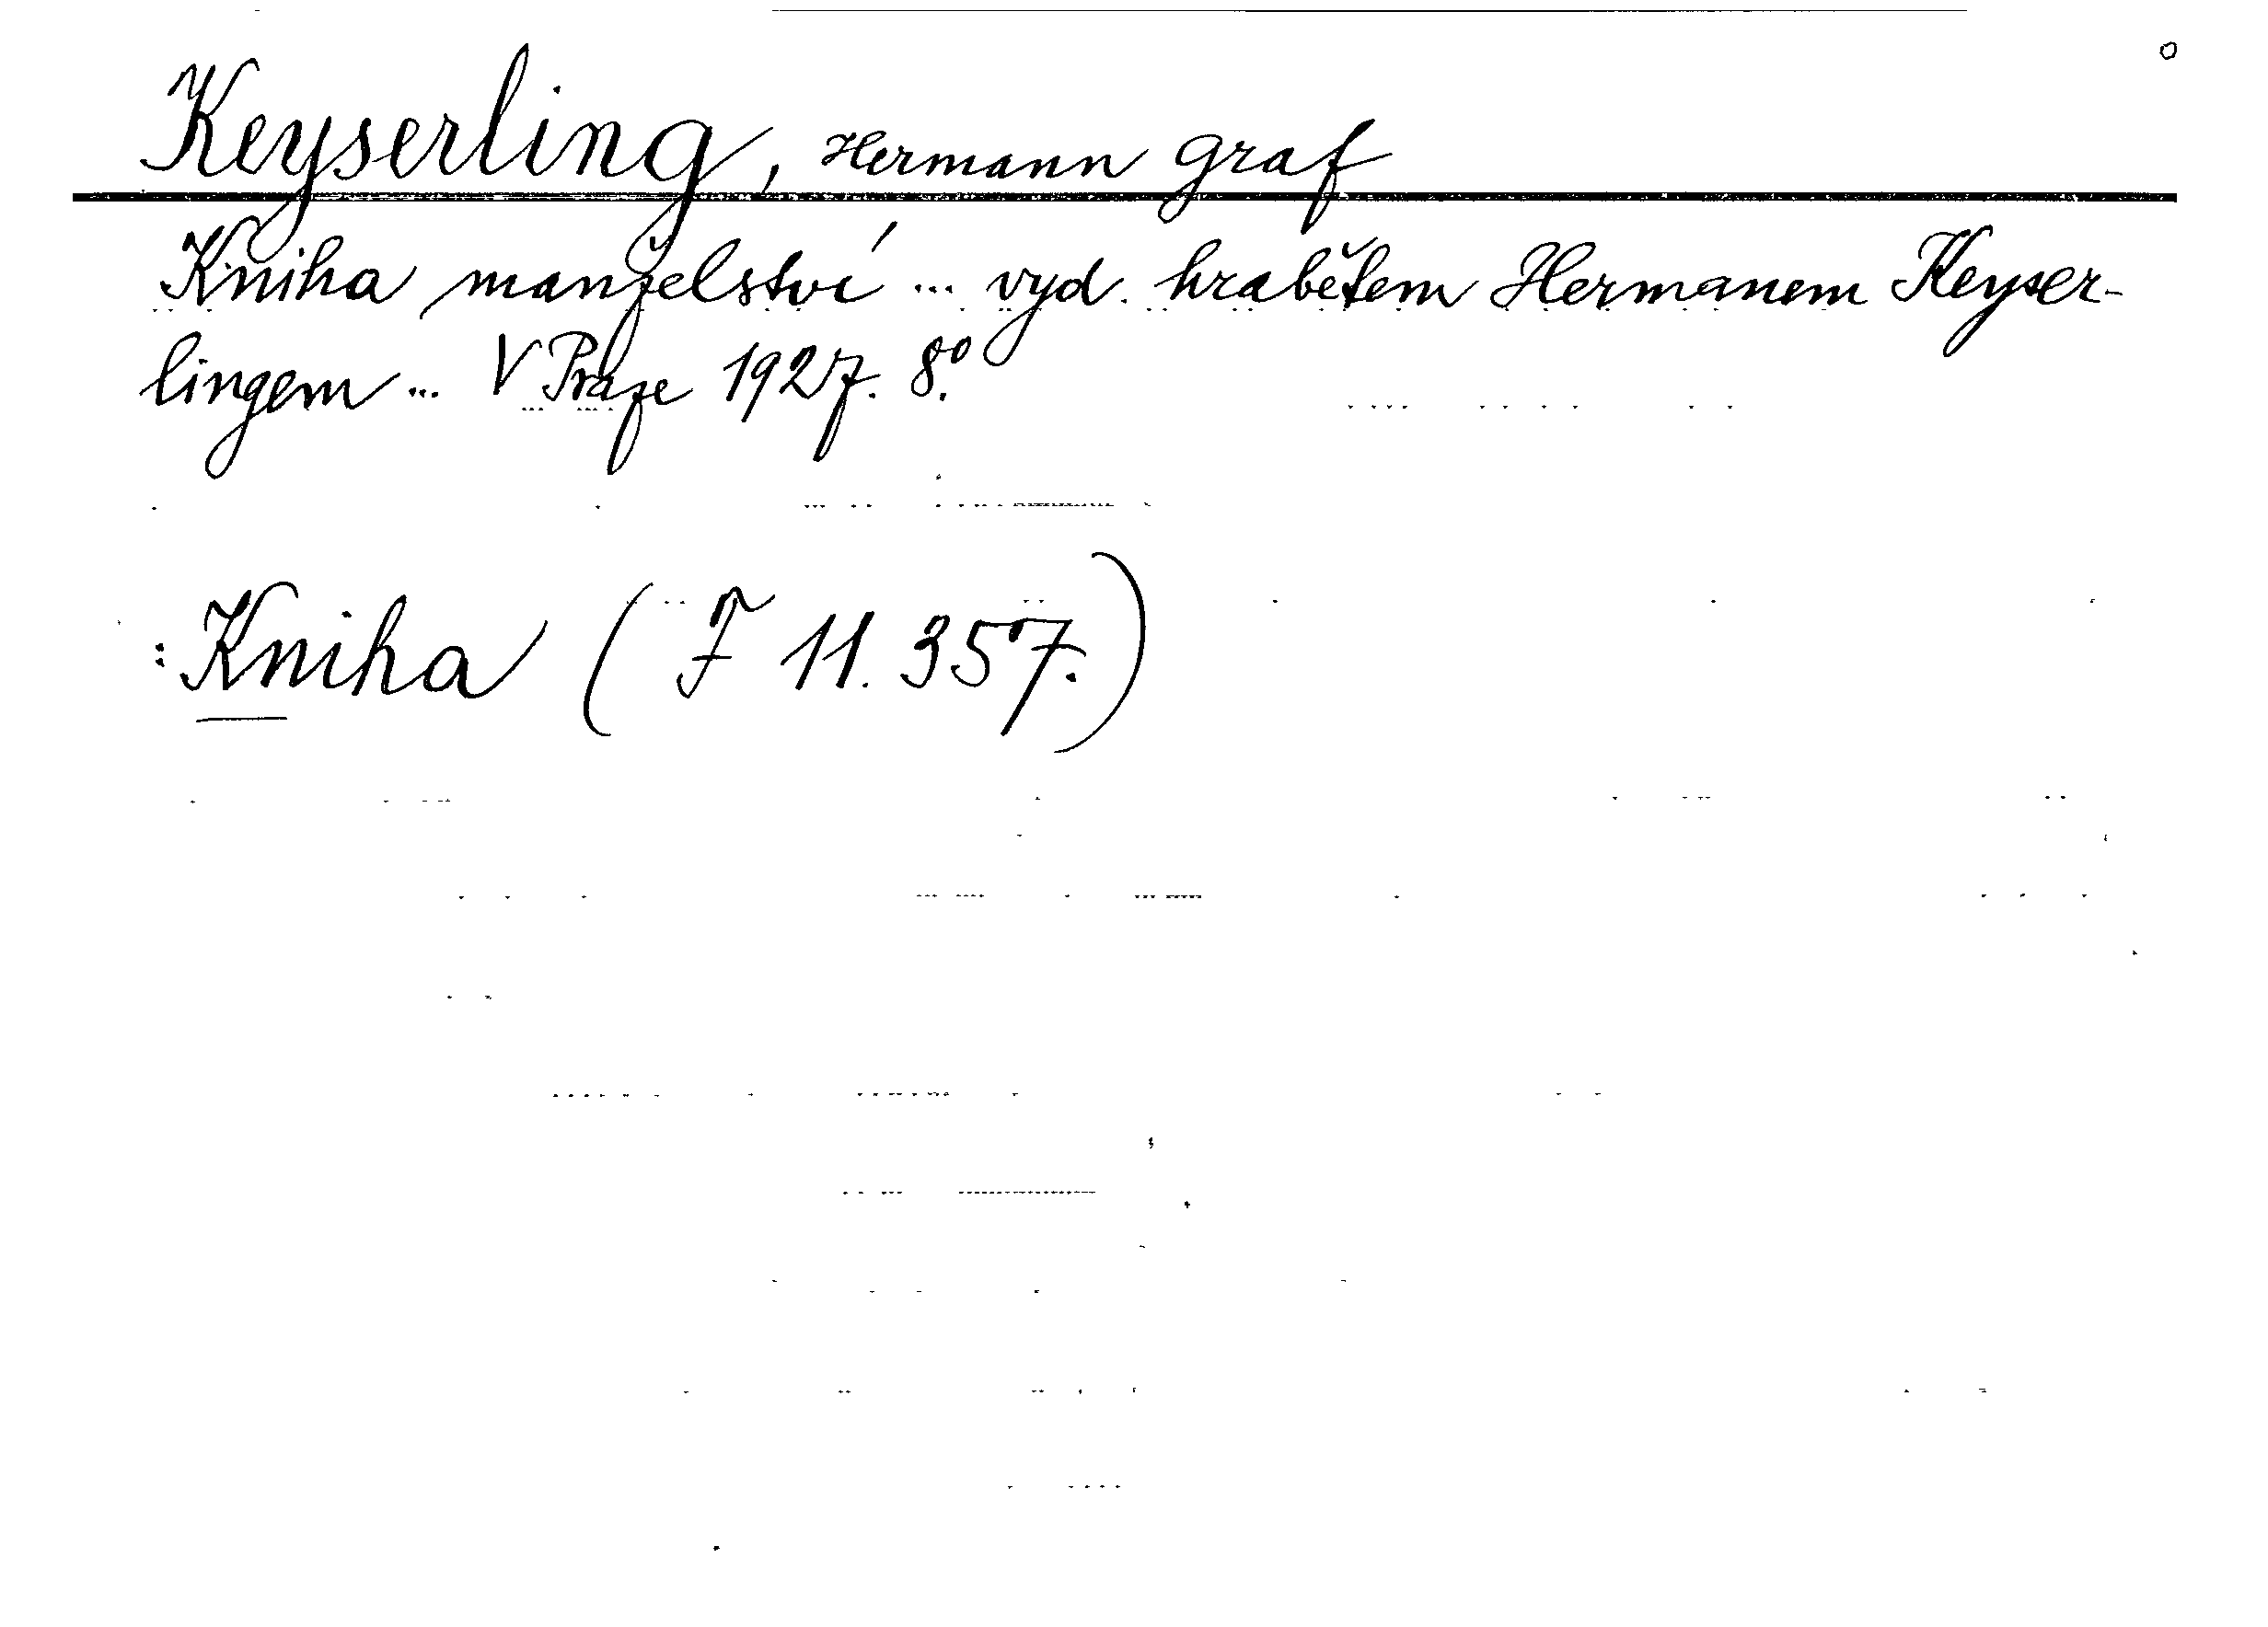 Keyserling, Hermann Graf
Kniha manželství ... vyd. hrabětem Hermanem Keyser-
lingem ... V Praze 1927. 8º.
: Kniha ( F 11.357.)